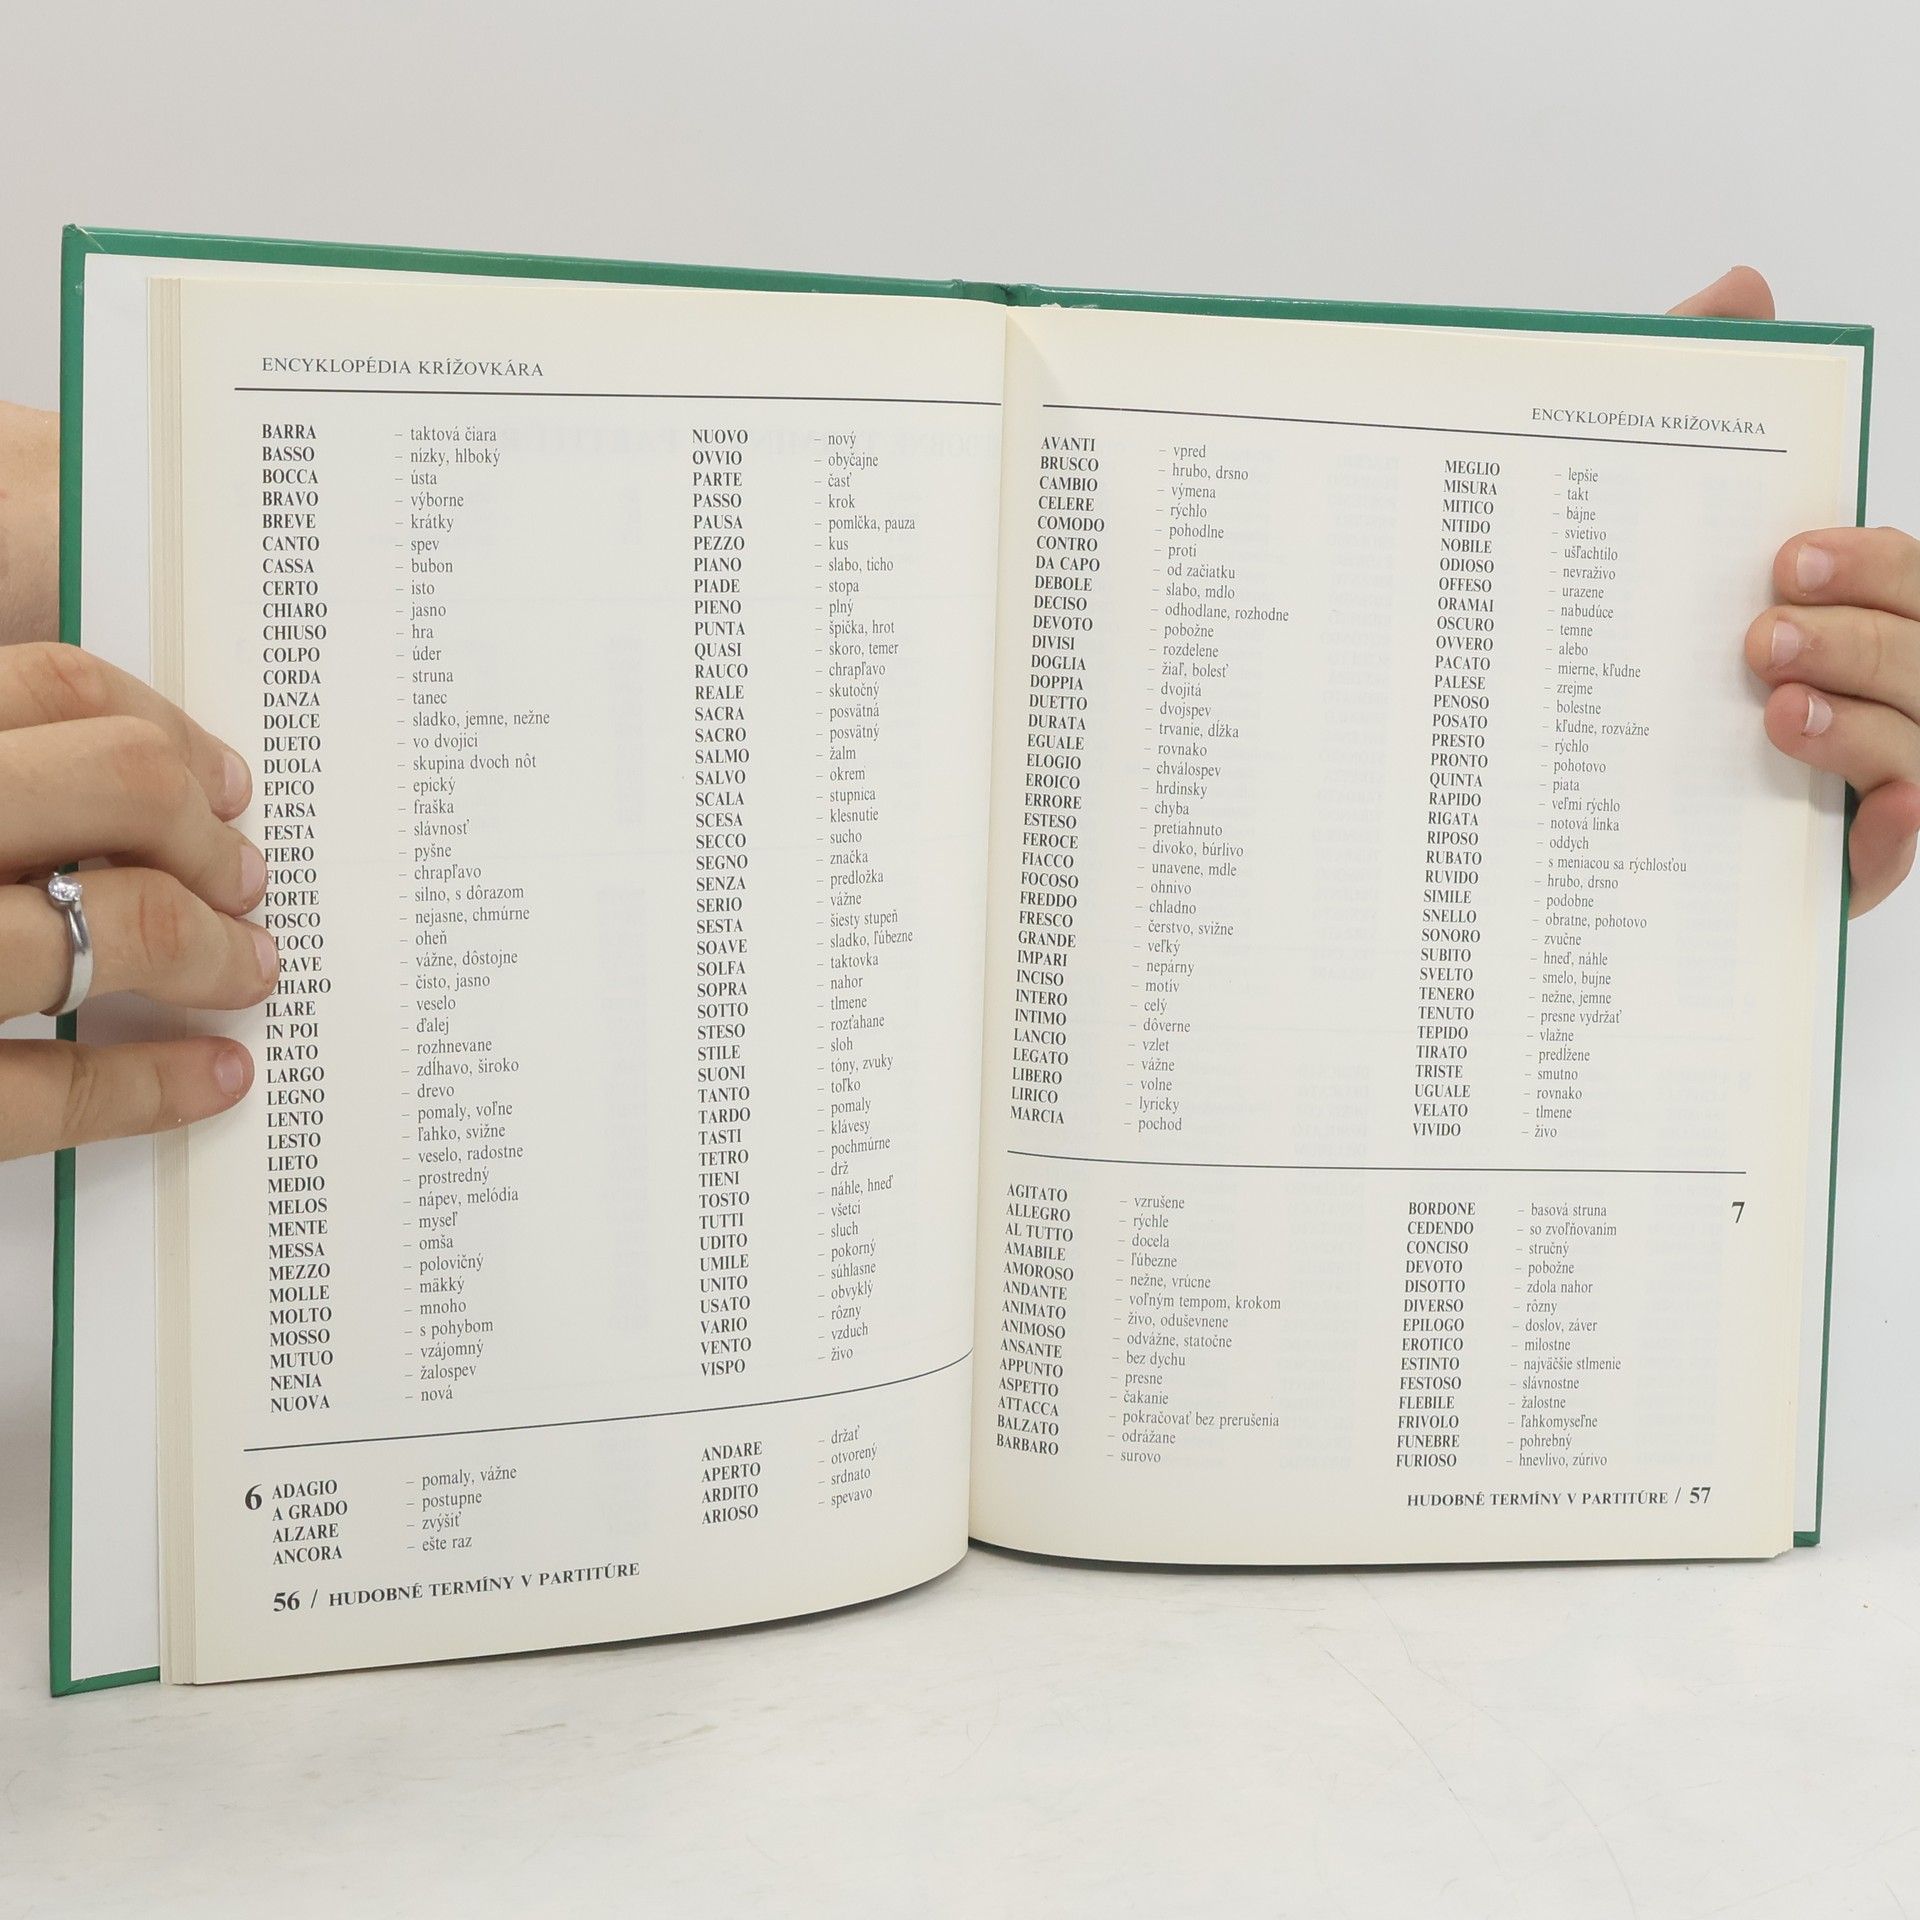 ENCYKLOPÉDIA KRÍŽOVKÁRA
BARRA – taktová čiara
BASSO – nízky, hlboký
BOCCA – ústa
BRAVO – výborne
BREVE – krátky
CANTO – spev
CASSA – bubon
CERTO – isto
CHIARO – jasno
CHIUSO – hra
COLPO – úder
CORDA – struna
DANZA – tanec
DOLCE – sladko, jemne, nežne
DUETO – vo dvojici
DUOLA – skupina dvoch nôt
EPICO – epický
FARSA – fraška
FESTA – slávnosť
FIERO – pyšne
FIOCO – chrapľavo
FORTE – silno, s dôrazom
FOSCO – nejasne, chmúrne
UOCO – oheň
RAVE – vážne, dôstojne
HIARO – čisto, jasno
ILARE – veselo
IN POI – ďalej
IRATO – rozhnevane
LARGO – zdĺhavo, široko
LEGNO – drevo
LENTO – pomaly, voľne
LESTO – ľahko, svižne
LIETO – veselo, radostne
MEDIO – prostredný
MELOS – nápev, melódia
MENTE – myseľ
MESSA – omša
MEZZO – polovičný
MOLLE – mäkký
MOLTO – mnoho
MOSSO – s pohybom
MUTUO – vzájomný
NENIA – žalospev
NUOVA – nová
NUOVO – nový
OVVIO – obyčajne
PARTE – časť
PASSO – krok
PAUSA – pomlčka, pauza
PEZZO – kus
PIANO – slabo, ticho
PIADE – stopa
PIENO – plný
PUNTA – špička, hrot
QUASI – skoro, temer
RAUCO – chrapľavo
REALE – skutočný
SACRA – posvätná
SACRO – posvätný
SALMO – žalm
SALVO – okrem
SCALA – stupnica
SCESA – klesnutie
SECCO – sucho
SEGNO – značka
SENZA – predložka
SERIO – vážne
SESTA – šiesty stupeň
SOAVE – sladko, ľúbezne
SOLFA – taktovka
SOPRA – nahor
SOTTO – tlmene
STESO – rozťahane
STILE – sloh
SUONI – tóny, zvuky
TANTO – toľko
TARDO – pomaly
TASTI – klávesy
TETRO – pochmúrne
TIENI – drž
TOSTO – náhle, hneď
TUTTI – všetci
UDITO – sluch
UMILE – pokorný
UNITO – súhlasne
USATO – obvyklý
VARIO – rôzny
VENTO – vzduch
VISPO – živo
6 ADAGIO – pomaly, vážne
A GRADO – postupne
ALZARE – zvýšiť
ANCORA – ešte raz
ANDARE – držať
APERTO – otvorený
ARDITO – srdnato
ARIOSO – spevavo
56 / HUDOBNÉ TERMÍNY V PARTITÚRE
ENCYKLOPÉDIA KRÍŽOVKÁRA
AVANTI – vpred
BRUSCO – hrubo, drsno
CAMBIO – výmena
CELERE – rýchlo
COMODO – pohodlne
CONTRO – proti
DA CAPO – od začiatku
DEBOLE – slabo, mdlo
DECISO – odhodlane, rozhodne
DEVOTO – pobožne
DIVISI – rozdelene
DOGLIA – žiaľ, bolesť
DOPPIA – dvojitá
DUETTO – dvojspev
DURATA – trvanie, dĺžka
EGUALE – rovnako
ELOGIO – chválospev
EROICO – hrdinsky
ERRORE – chyba
ESTESO – pretiahnuto
FEROCE – divoko, búrlivo
FIACCO – unavene, mdle
FOCOSO – ohnivo
FREDDO – chladno
FRESCO – čerstvo, svižne
GRANDE – veľký
IMPARI – nepárny
INCISO – motív
INTERO – celý
INTIMO – dôverne
LANCIO – vzlet
LEGATO – vážne
LIBERO – volne
LIRICO – lyricky
MARCIA – pochod
MEGLIO – lepšie
MISURA – takt
MITICO – bájne
NITIDO – svietivo
NOBILE – ušľachtilo
ODIOSO – nevraživo
OFFESO – urazene
ORAMAI – nabudúce
OSCURO – temne
OVVERO – alebo
PACATO – mierne, kľudne
PALESE – zrejme
PENOSO – bolestne
POSATO – kľudne, rozvážne
PRESTO – rýchlo
PRONTO – pohotovo
QUINTA – piata
RAPIDO – veľmi rýchlo
RIGATA – notová linka
RIPOSO – oddych
RUBATO – s meniacou sa rýchlosťou
RUVIDO – hrubo, drsno
SIMILE – podobne
SNELLO – obratne, pohotovo
SONORO – zvučne
SUBITO – hneď, náhle
SVELTO – smelo, bujne
TENERO – nežne, jemne
TENUTO – presne vydržať
TEPIDO – vlažne
TIRATO – predlžene
TRISTE – smutno
UGUALE – rovnako
VELATO – tlmene
VIVIDO – živo
AGITATO – vzrušene
ALLEGRO – rýchle
AL TUTTO – docela
AMABILE – ľúbezne
AMOROSO – nežne, vrúcne
ANDANTE – voľným tempom, krokom
ANIMATO – živo, oduševnene
ANIMOSO – odvážne, statočne
ANSANTE – bez dychu
APPUNTO – presne
ASPETTO – čakanie
ATTACCA – pokračovať bez prerušenia
BALZATO – odrážane
BARBARO – surovo
BORDONE – basová struna 7
CEDENDO – so zvoľňovaním
CONCISO – stručný
DEVOTO – pobožne
DISOTTO – zdola nahor
DIVERSO – rôzny
EPILOGO – doslov, záver
EROTICO – milostne
ESTINTO – najväčšie stlmenie
FESTOSO – slávnostne
FLEBILE – žalostne
FRIVOLO – ľahkomyseľne
FUNEBRE – pohrebný
FURIOSO – hnevlivo, zúrivo
HUDOBNÉ TERMÍNY V PARTITÚRE / 57